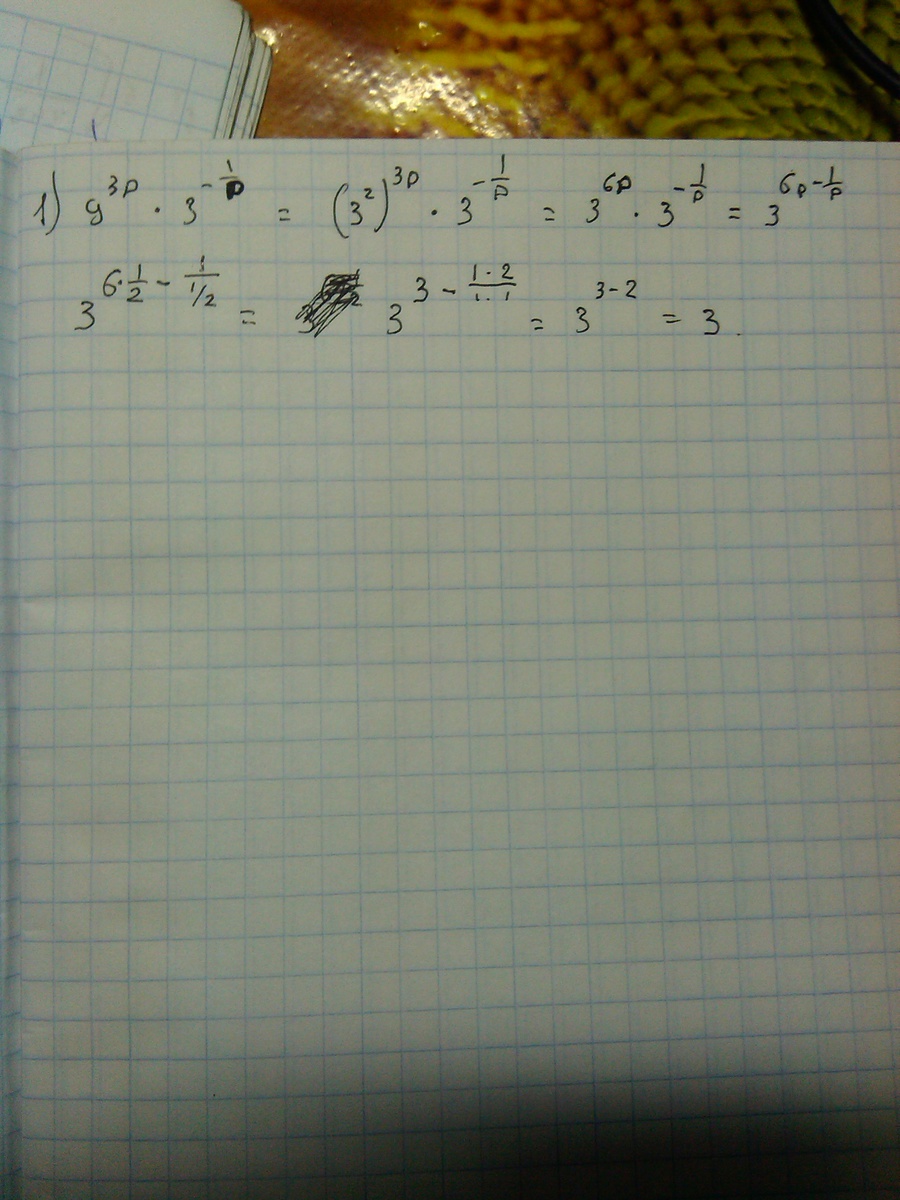 1) 9^{3p} · 3^{-\frac{1}{p}} = (3^2)^{3p} · 3^{-\frac{1}{p}} = 3^{6p} · 3^{-\frac{1}{p}} = 3^{6p-\frac{1}{p}}
3^{6·\frac{1}{2} - \frac{1}{1/2}} = 3^{3 - \frac{1·2}{1·1}} = 3^{3-2} = 3.